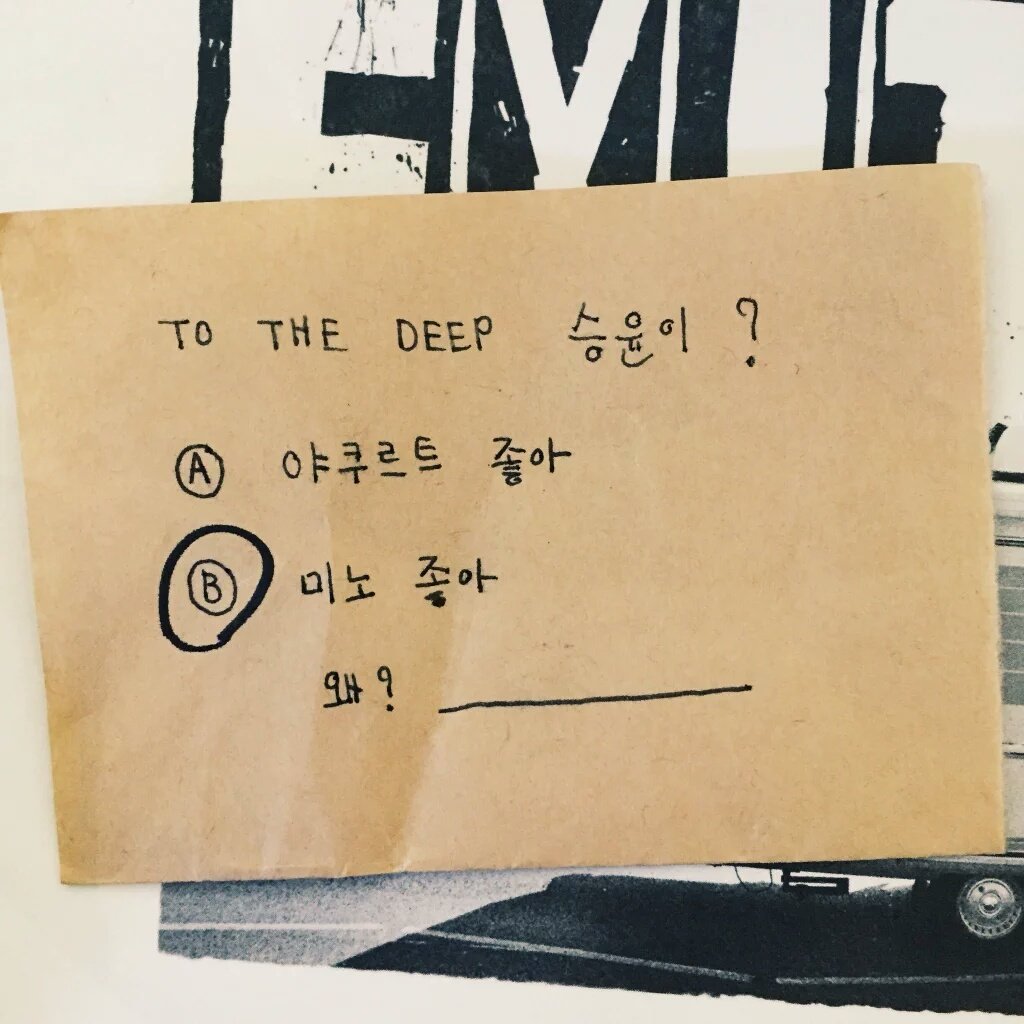 TO THE DEEP 승윤이 ?
Ⓐ 야쿠르트 좋아
Ⓑ 미노 좋아
왜?